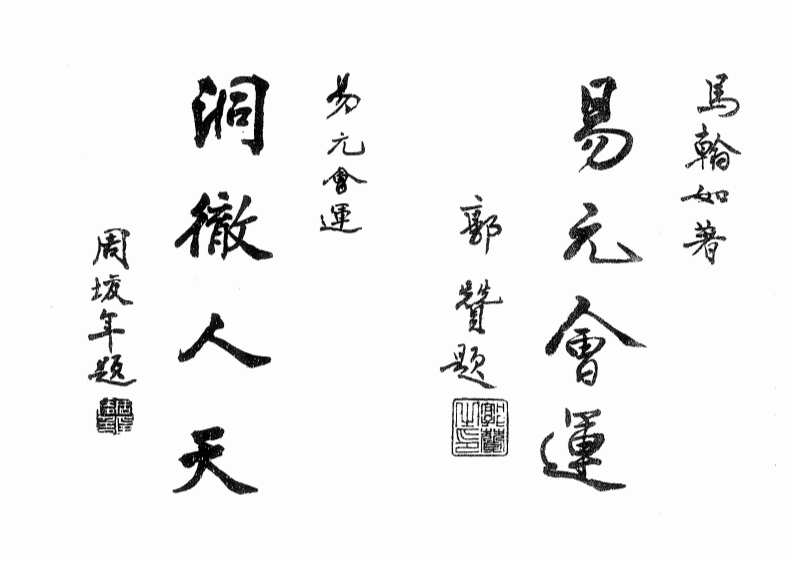 馬翰如著
易元會運
郭贊題
易元會運
洞徹人天
周垓年題